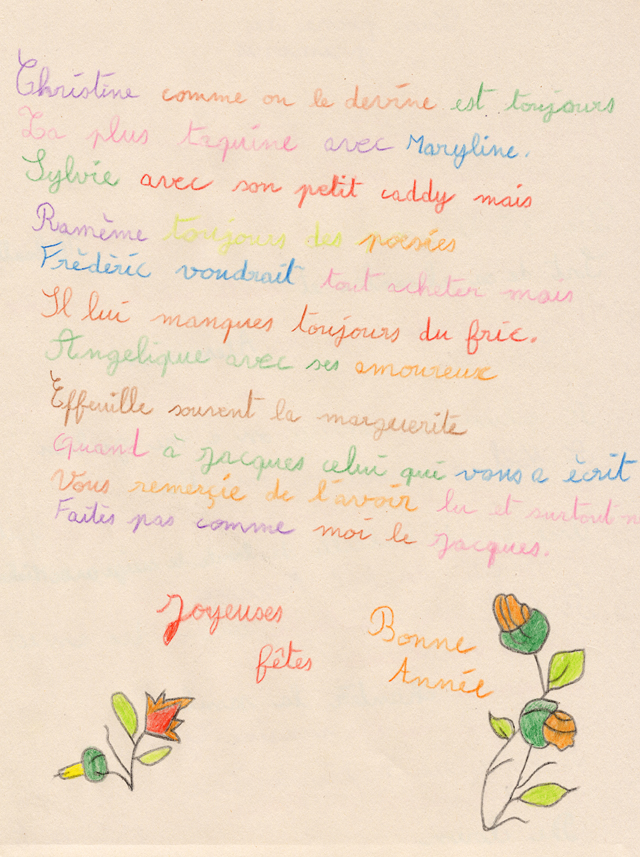 Christine comme on le devine est toujours
La plus taquine avec Maryline.
Sylvie avec son petit caddy mais
Ramème toujours des poesies
Frèdèric voudrait tout acheter mais
Il lui manques toujours du fric.
Angelique avec ses amoureux
Effeuille souvent la marguerite
Quand à Jacques celui qui vous a ècrit
Vous remerçie de l'avoir lu et surtout n
Faites pas comme moi le Jacques.
Joyeuses
fêtes
Bonne
Année